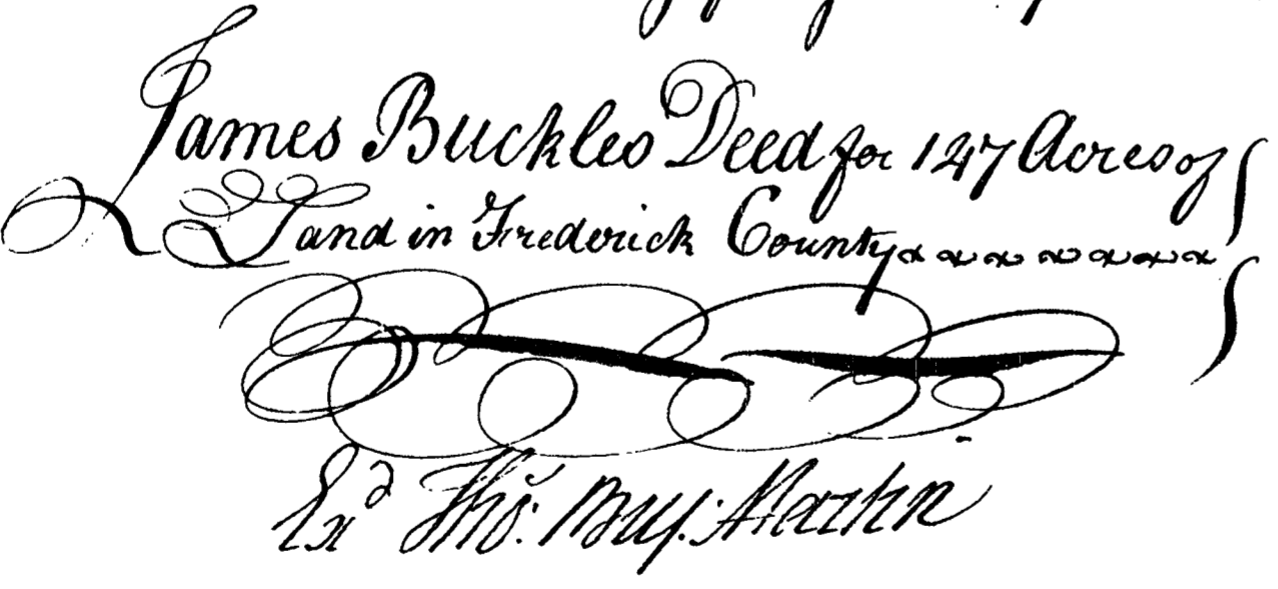 James Buckles Deed for 147 Acres of
Land in Frederick County
Exd Thos. Bry. Martin